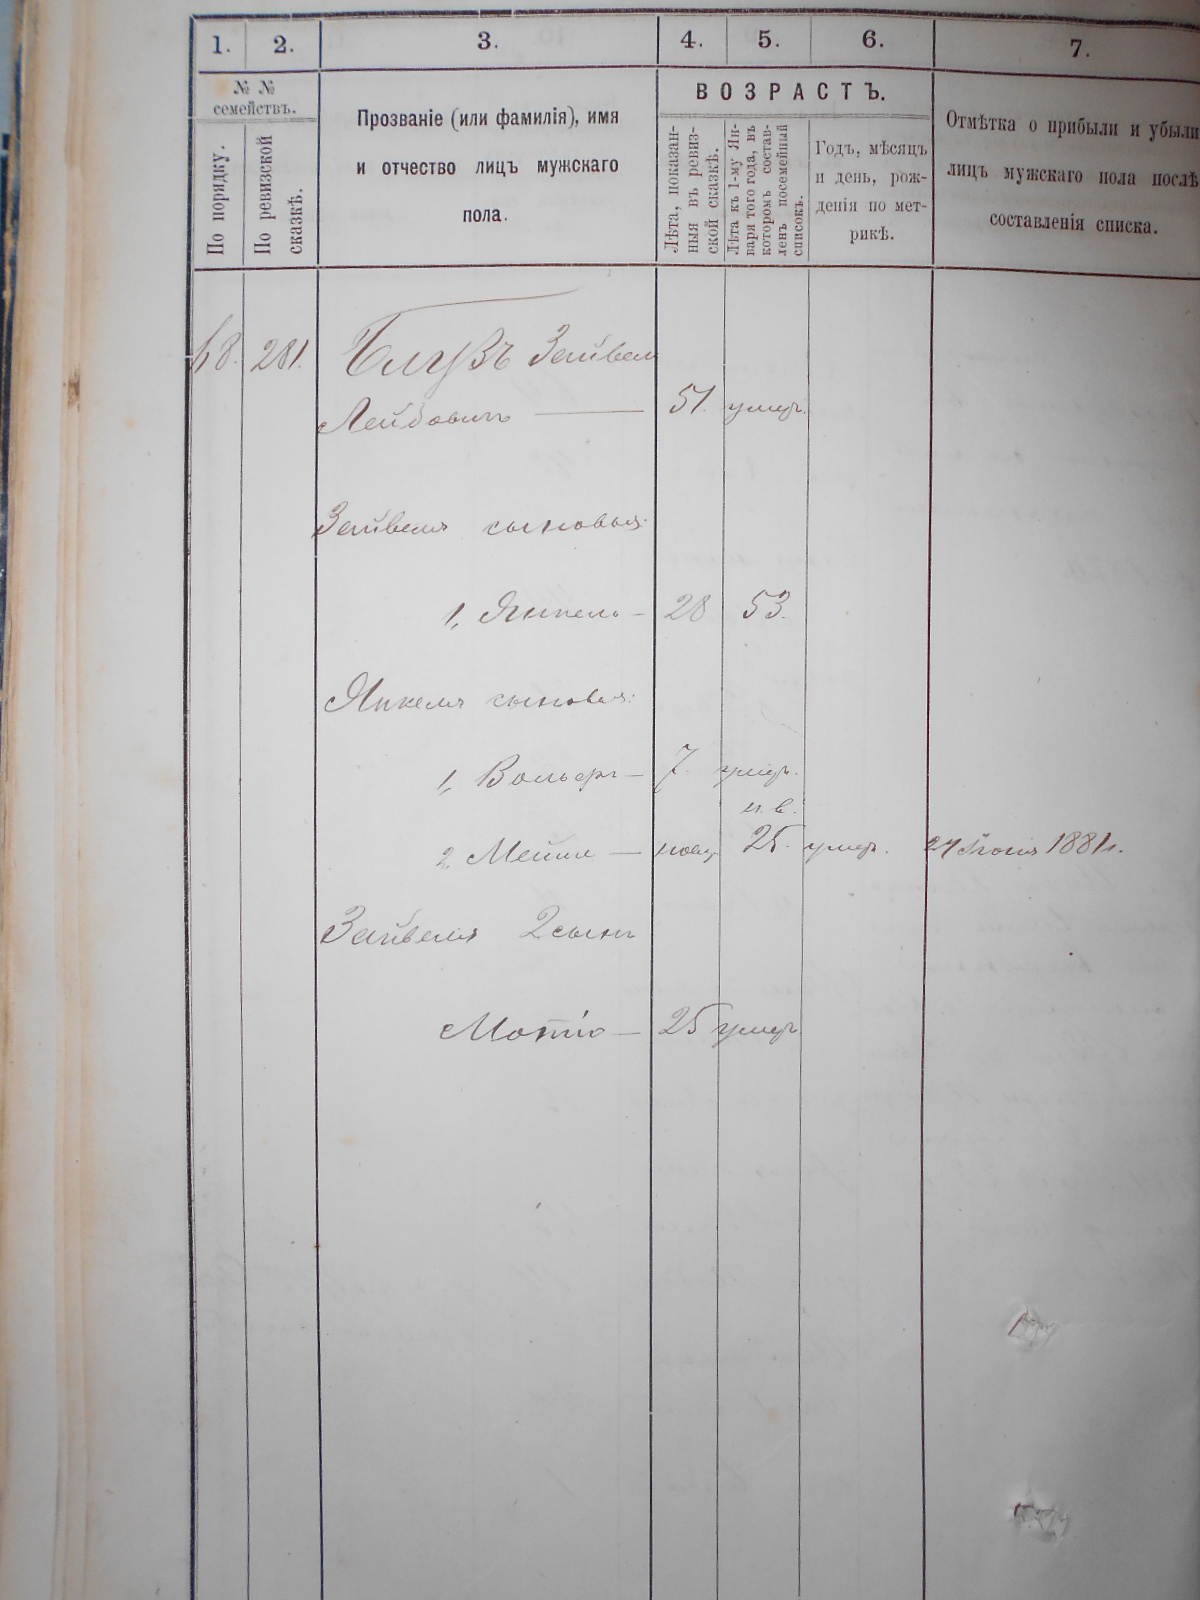 1. 2. 3. 4. 5. 6. 7.
№ №
семействъ.
По порядку.
По ревизской
сказкѣ.
Прозваніе (или фамилія), имя
и отчество лицъ мужскаго
пола.
ВОЗРАСТЪ.
Лѣта, показан-
ныя въ ревиз-
ской сказкѣ.
Лѣта къ 1-му Ян-
варя того года, въ
которомъ состав-
ленъ посемейный
списокъ.
Годъ, мѣсяцъ
и день, рож-
денія по мет-
рикѣ.
Отмѣтка о прибыли и убыли
лицъ мужскаго пола послѣ
составленія списка.
68. 281. Блузъ Зейвел
Лейбовичъ — 51. умеръ.
Зейвеля сыновья:
1, Янкель — 28 53.
Янкеля сыновья:
1, Вольфъ — 7. умеръ.
н. в.
2, Мейше — нову 25. умеръ. 24 Іюня 1881 г.
Зейвеля 2 сынъ
Мотіо — 25 умеръ